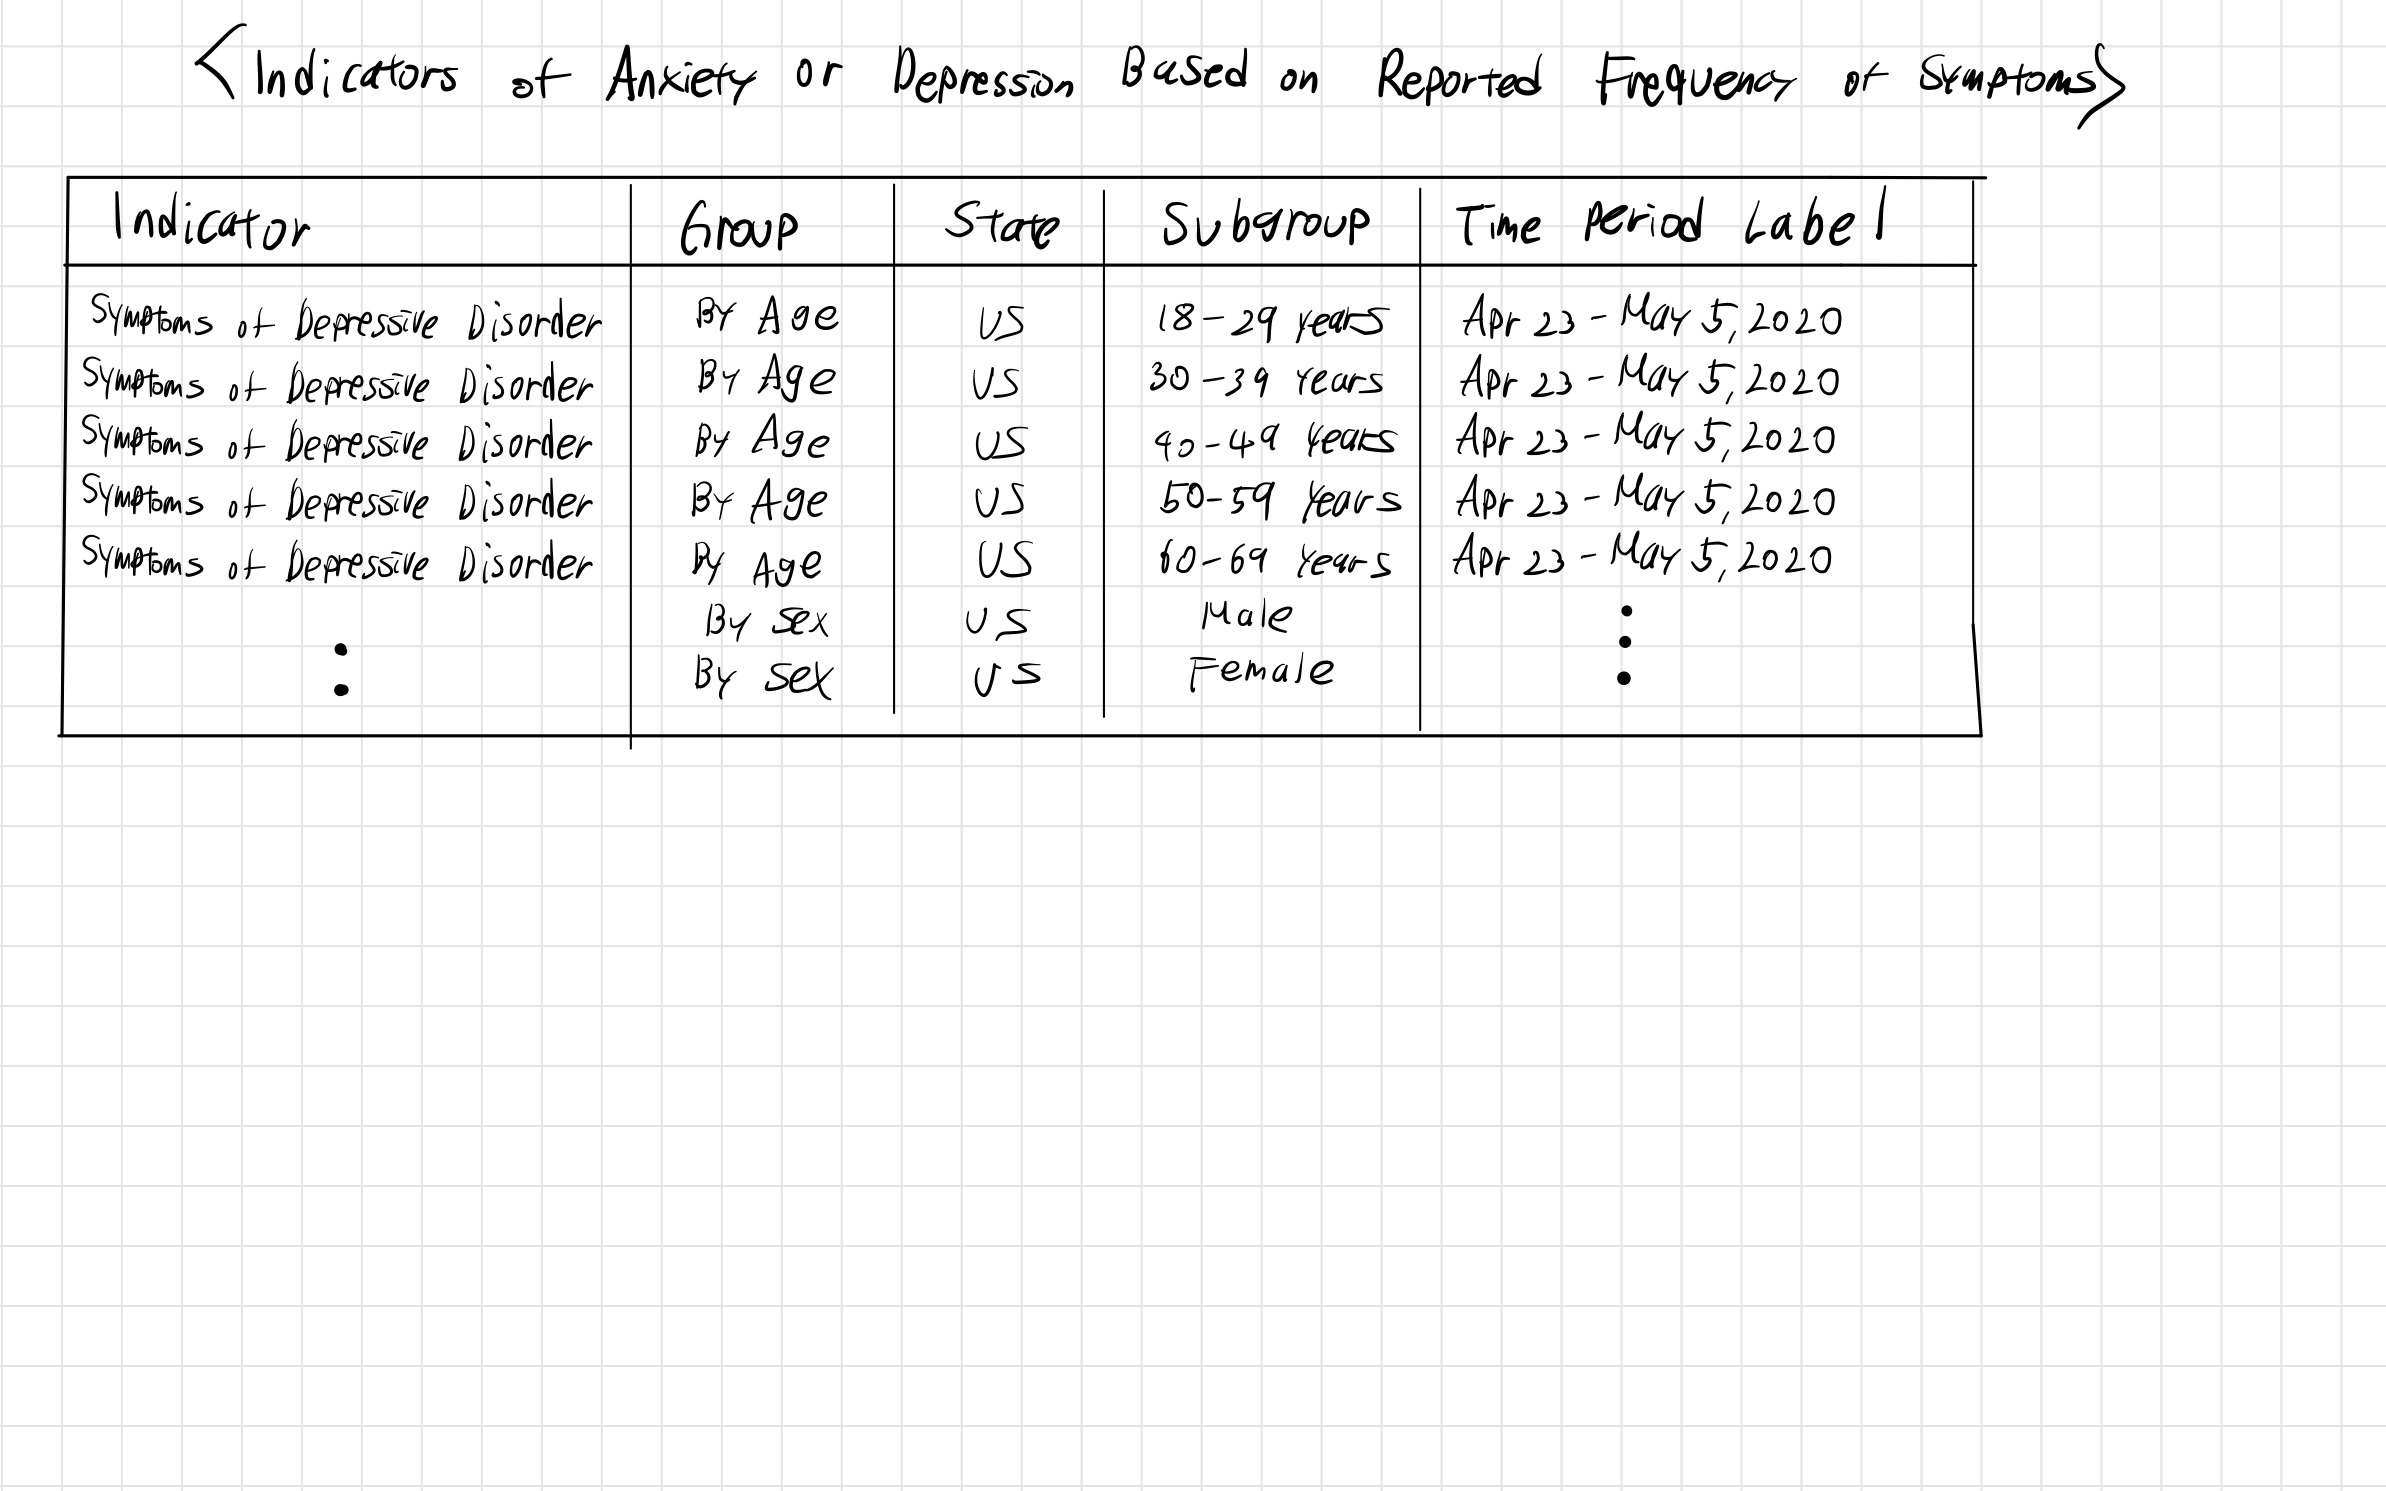 <Indicators of Anxiety or Depression Based on Reported Frequency of Symptoms>
Indicator Group State Subgroup Time Period Label
Symptoms of Depressive Disorder By Age US 18-29 years Apr 23 - May 5, 2020
Symptoms of Depressive Disorder By Age US 30-39 years Apr 23 - May 5, 2020
Symptoms of Depressive Disorder By Age US 40-49 years Apr 23 - May 5, 2020
Symptoms of Depressive Disorder By Age US 50-59 years Apr 23 - May 5, 2020
Symptoms of Depressive Disorder By Age US 60-69 years Apr 23 - May 5, 2020
By sex US Male
By sex US Female